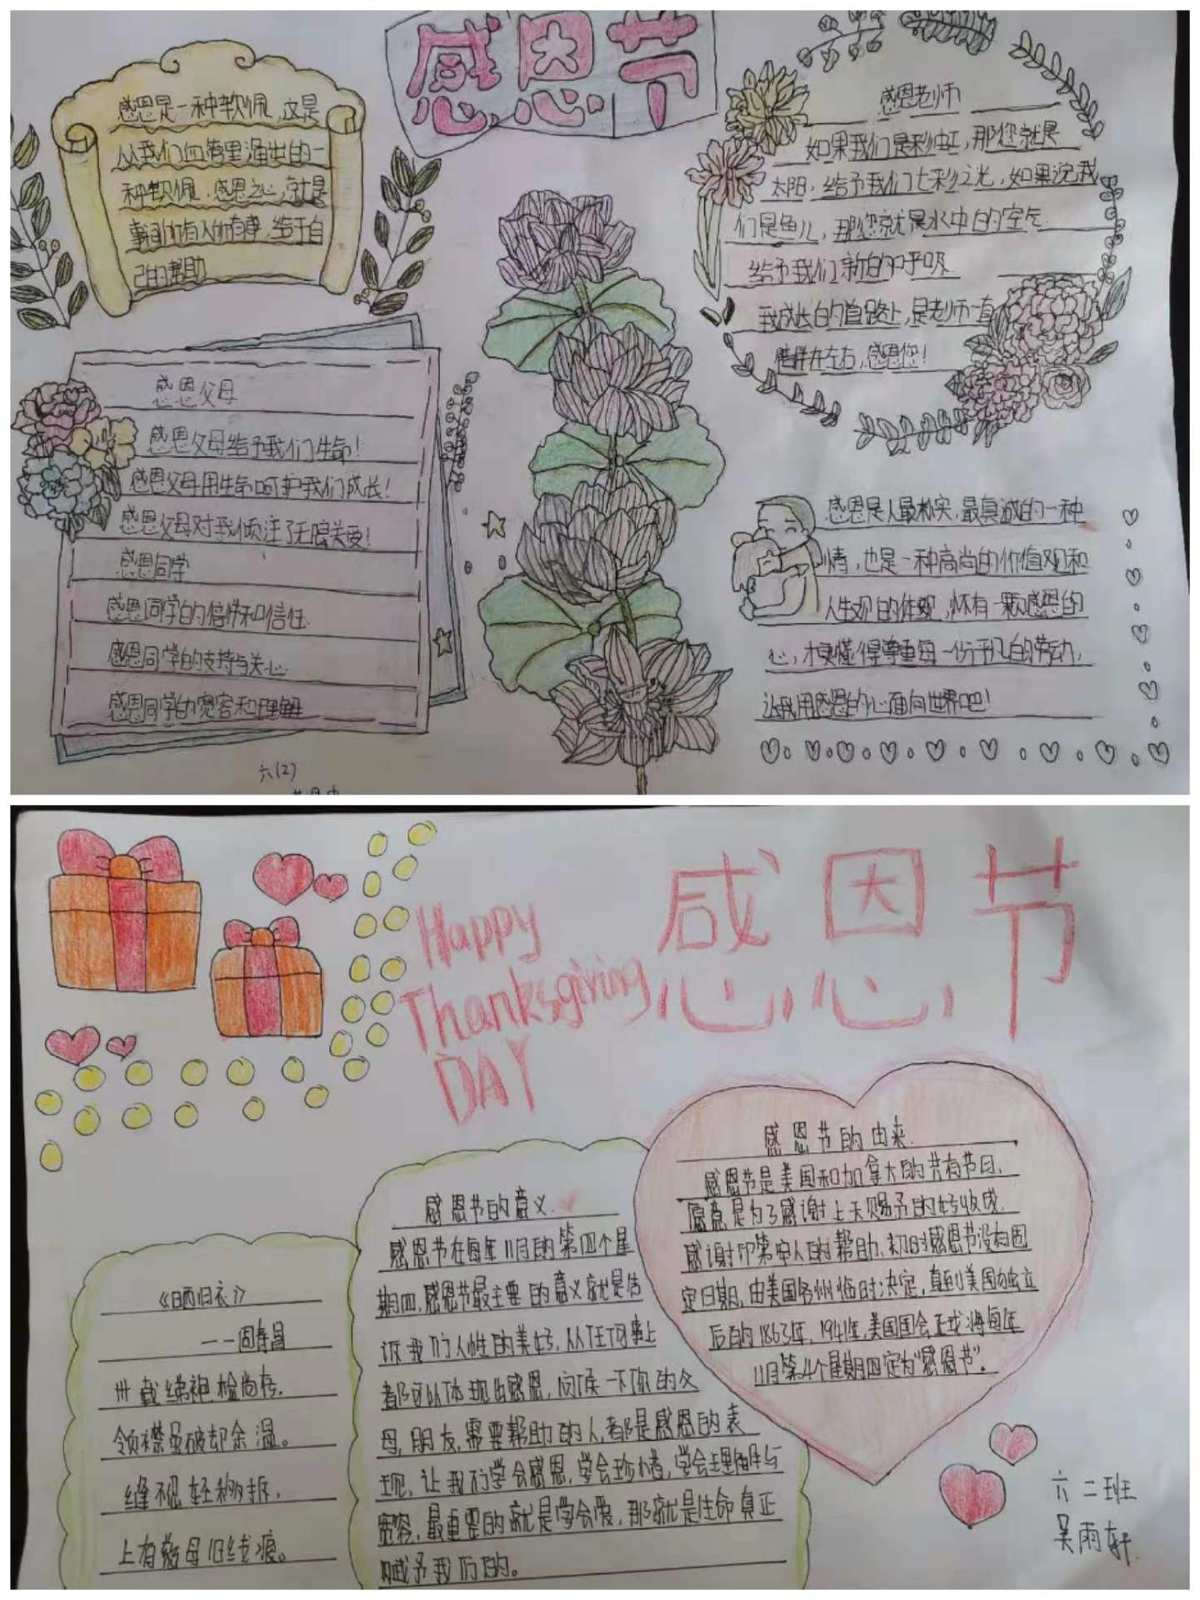 感恩节
感恩是一种钦佩,这是
从我们血管里涌出的一
种钦佩.感恩之心,就是
事间所有人所有事,给于自
己的帮助
感恩父母
感恩父母给予我们生命!
感恩父母用生命呵护我们成长!
感恩父母对我倾注了无限关爱!
感恩同学
感恩同学的信任和信任.
感恩同学的支持与关心
感恩同学的宽容和理解
六(2)
感恩老师!
如果我们是彩虹,那您就是
太阳,给予我们七彩之光,如果说我
们是鱼儿,那您就是水中的空气
给予我们新的呼吸
我成长的道路上,是老师一直
陪伴在左右,感恩您!
感恩是人最朴实,最真诚的一种
情,也是一种高尚的价值观和
人生观的体现,怀有一颗感恩的
心,才更懂得尊重每一份平凡的劳动,
让我用感恩的心面向世界吧!
感恩节
Happy
Thanksgiving
DAY
感恩节的由来.
感恩节是美国和加拿大的共有节日,
愿意是为了感谢上天赐予的好收成,
感谢印第安人的帮助,初时感恩节没有固
定日期,由美国各州临时决定,直到美国独立
后的1863年,1941年,美国国会正式将每年
11月第4个星期四定为“感恩节”.
感恩节的意义.
感恩节在每年11月的第四个星
期四,感恩节最主要的意义就是告
诉我们人性的美好,从任何事上
都可以体现出感恩,问候一下你的父
母,朋友,需要帮助的人,都是感恩的表
现,让我们学会感恩,学会珍惜,学会理解与
宽容,最重要的就是学会爱,那就是生命真正
赋予我们的。
《晒旧衣》
——周寿昌
卅载绨袍检尚存,
领襟虽破却余温。
缝不忍轻移拆,
上有慈母旧线痕。
六二班
吴雨轩